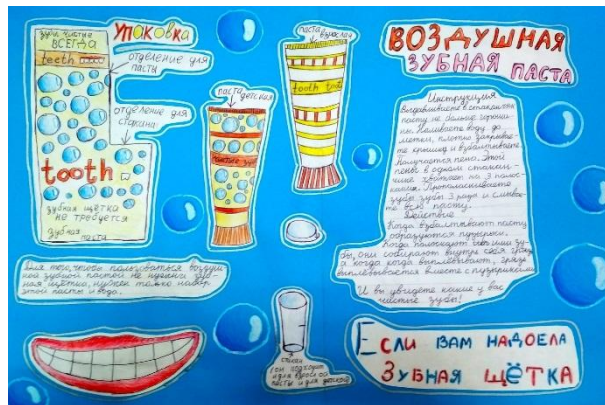 Упаковка
зубы чистые
ВСЕГДА
teeth
отделение для
пасты
отделение для
стакана
tooth
зубная щётка
не требуется
зубная
паста
паста
детская
чистые зубы
паста
взрослая
tooth tooth
ВОЗДУШНАЯ
ЗУБНАЯ ПАСТА
Инструкция
Выдавливаете в стаканчик
пасту не больше гороши-
ны. Наливаете воду до
метки, плотно закрывае-
те крышкой и взбалтываете.
Получается пена. Этой
пены в одном стакан-
чике хватает на 3 полос-
кания. Прополаскиваете
зубы 3 раза и смывае-
те всю пасту.
Действие
Когда взбалтывают пасту
образуются пузырьки.
Когда полоскают ими зу-
бы, они собирают внутрь себя грязь
а когда когда выплёвывают, грязь
выплёвывается вместе с пузырьками
И вы увидите какие у вас
чистые зубы!
Для того, чтобы пользоваться воздуш-
ной зубной пастой не нужна зуб-
ная щётка, нужен только набор
этой пасты и вода.
стакан
(он подходит
и для взрослой
пасты и для детской)
Если вам надоела
Зубная щётка